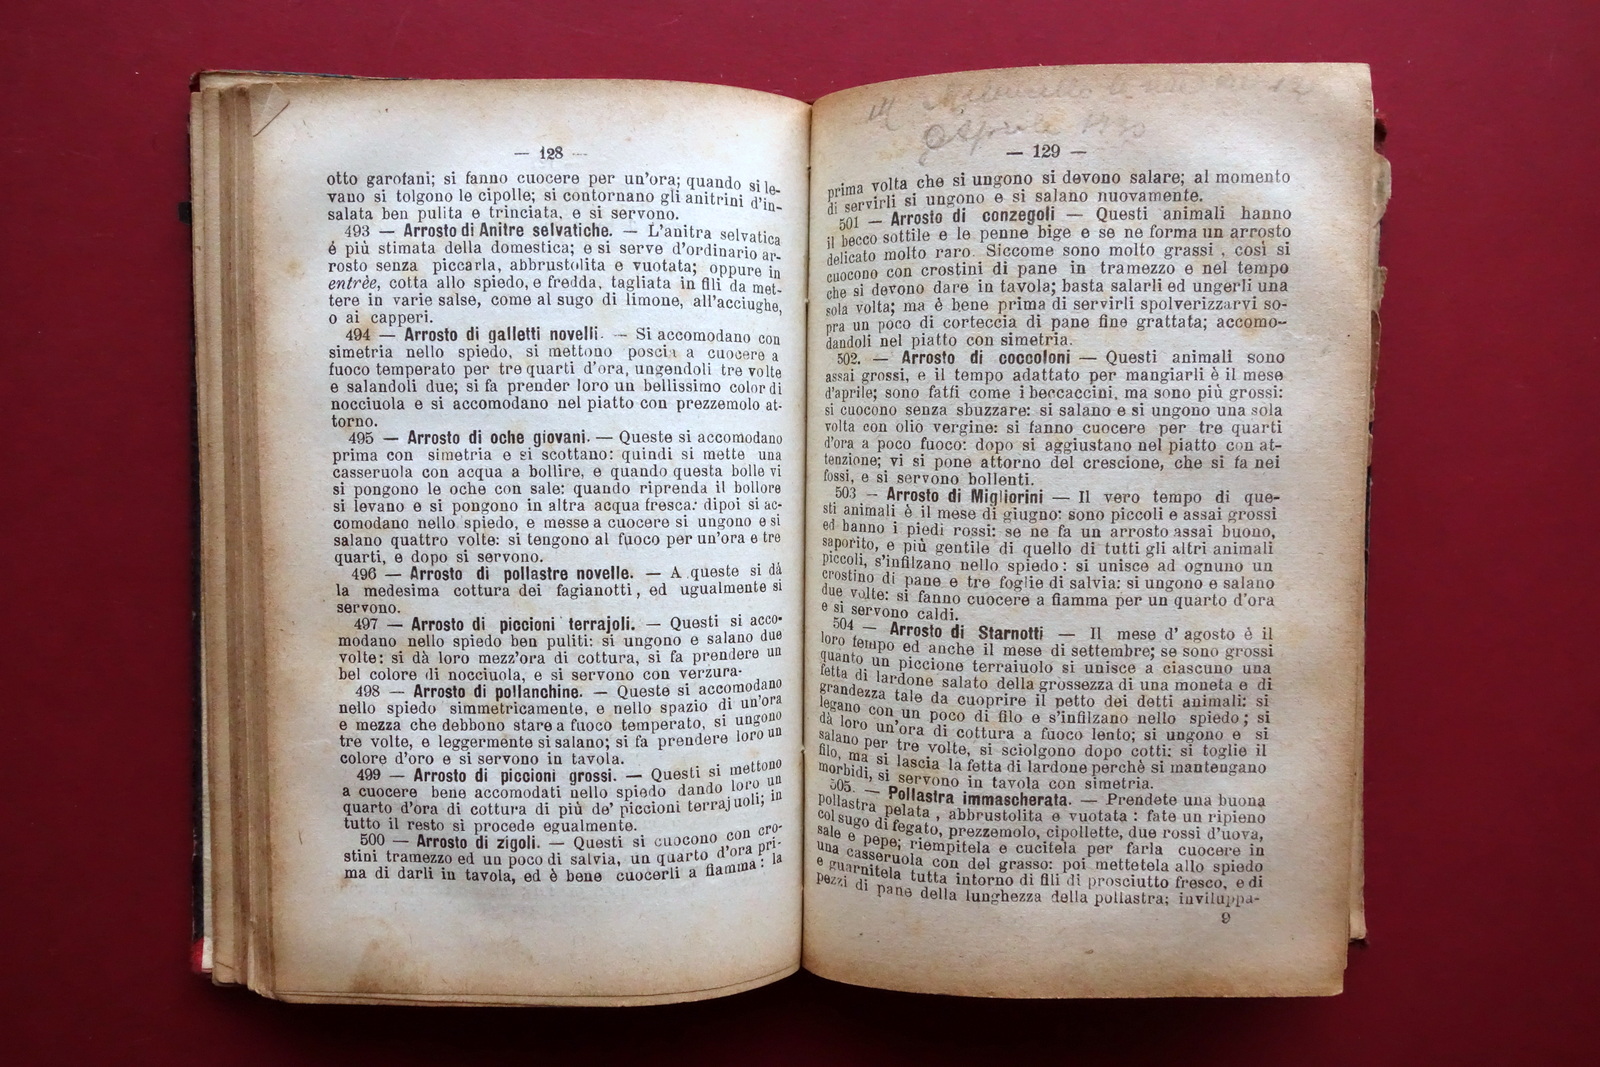 — 128 —
otto garofani; si fanno cuocere per un'ora; quando si le-
vano si tolgono le cipolle; si contornano gli anitrini d'in-
salata ben pulita e trinciata, e si servono.
493 — Arrosto di Anitre selvatiche. — L'anitra selvatica
é più stimata della domestica; e si serve d'ordinario ar-
rosto senza piccarla, abbrustolita e vuotata; oppure in
entrèe, cotta allo spiedo, e fredda, tagliata in fili da met-
tere in varie salse, come al sugo di limone, all'acciughe,
o ai capperi.
494 — Arrosto di galletti novelli. — Si accomodano con
simetria nello spiedo, si mettono poscia a cuocere a
fuoco temperato per tre quarti d'ora, ungendoli tre volte
e salandoli due; si fa prender loro un bellissimo color di
nocciuola e si accomodano nel piatto con prezzemolo at-
torno.
495 — Arrosto di oche giovani. — Queste si accomodano
prima con simetria e si scottano: quindi si mette una
casseruola con acqua a bollire, e quando questa bolle vi
si pongono le oche con sale: quando riprenda il bollore
si levano e si pongono in altra acqua fresca: dipoi si ac-
comodano nello spiedo, e messe a cuocere si ungono e si
salano quattro volte: si tengono al fuoco per un'ora e tre
quarti, e dopo si servono.
496 — Arrosto di pollastre novelle. — A queste si dà
la medesima cottura dei fagianotti, ed ugualmente si
servono.
497 — Arrosto di piccioni terrajoli. — Questi si acco-
modano nello spiedo ben puliti: si ungono e salano due
volte: si dà loro mezz'ora di cottura, si fa prendere un
bel colore di nocciuola, e si servono con verzura.
498 — Arrosto di pollanchine. — Queste si accomodano
nello spiedo simmetricamente, e nello spazio di un'ora
e mezza che debbono stare a fuoco temperato, si ungono
tre volte, e leggermente si salano; si fa prendere loro un
colore d'oro e si servono in tavola.
499 — Arrosto di piccioni grossi. — Questi si mettono
a cuocere bene accomodati nello spiedo dando loro un
quarto d'ora di cottura di più de' piccioni terrajuoli; in
tutto il resto si procede egualmente.
500 — Arrosto di zigoli. — Questi si cuocono con cro-
stini tramezzo ed un poco di salvia, un quarto d'ora pri-
ma di darli in tavola, ed è bene cuocerli a fiamma: la
Aprile
— 129 —
prima volta che si ungono si devono salare; al momento
di servirli si ungono e si salano nuovamente.
501 — Arrosto di conzegoli — Questi animali hanno
il becco sottile e le penne bige e se ne forma un arrosto
delicato molto raro. Siccome sono molto grassi, così si
cuocono con crostini di pane in tramezzo e nel tempo
che si devono dare in tavola; basta salarli ed ungerli una
sola volta; ma é bene prima di servirli spolverizzarvi so-
pra un poco di corteccia di pane fine grattata; accomo-
dandoli nel piatto con simetria.
502. — Arrosto di coccoloni — Questi animali sono
assai grossi, e il tempo adattato per mangiarli è il mese
d'aprile; sono fatfi come i beccaccini, ma sono più grossi:
si cuocono senza sbuzzare: si salano e si ungono una sola
volta con olio vergine: si fanno cuocere per tre quarti
d'ora a poco fuoco: dopo si aggiustano nel piatto con at-
tenzione; vi si pone attorno del crescione, che si fa nei
fossi, e si servono bollenti.
503 — Arrosto di Migliorini — Il vero tempo di que-
sti animali è il mese di giugno: sono piccoli e assai grossi
ed hanno i piedi rossi: se ne fa un arrosto assai buono,
saporito, e più gentile di quello di tutti gli altri animali
piccoli, s'infilzano nello spiedo: si unisce ad ognuno un
crostino di pane e tre foglie di salvia: si ungono e salano
due volte: si fanno cuocere a fiamma per un quarto d'ora
e si servono caldi.
504 — Arrosto di Starnotti — Il mese d' agosto è il
loro tempo ed anche il mese di settembre; se sono grossi
quanto un piccione terraiuolo si unisce a ciascuno una
fetta di lardone salato della grossezza di una moneta e di
grandezza tale da cuoprire il petto dei detti animali: si
legano con un poco di filo e s'infilzano nello spiedo; si
dà loro un'ora di cottura a fuoco lento; si ungono e si
salano per tre volte, si sciolgono dopo cotti: si toglie il
filo, ma si lascia la fetta di lardone perchè si mantengano
morbidi, si servono in tavola con simetria.
505. — Pollastra immascherata. — Prendete una buona
pollastra pelata, abbrustolita e vuotata: fate un ripieno
col sugo di fegato, prezzemolo, cipollette, due rossi d'uova,
sale e pepe; riempitela e cucitela per farla cuocere in
una casseruola con del grasso: poi mettetela allo spiedo
e guarnitela tutta intorno di fili di prosciutto fresco, e di
pezzi di pane della lunghezza della pollastra; inviluppa-
9